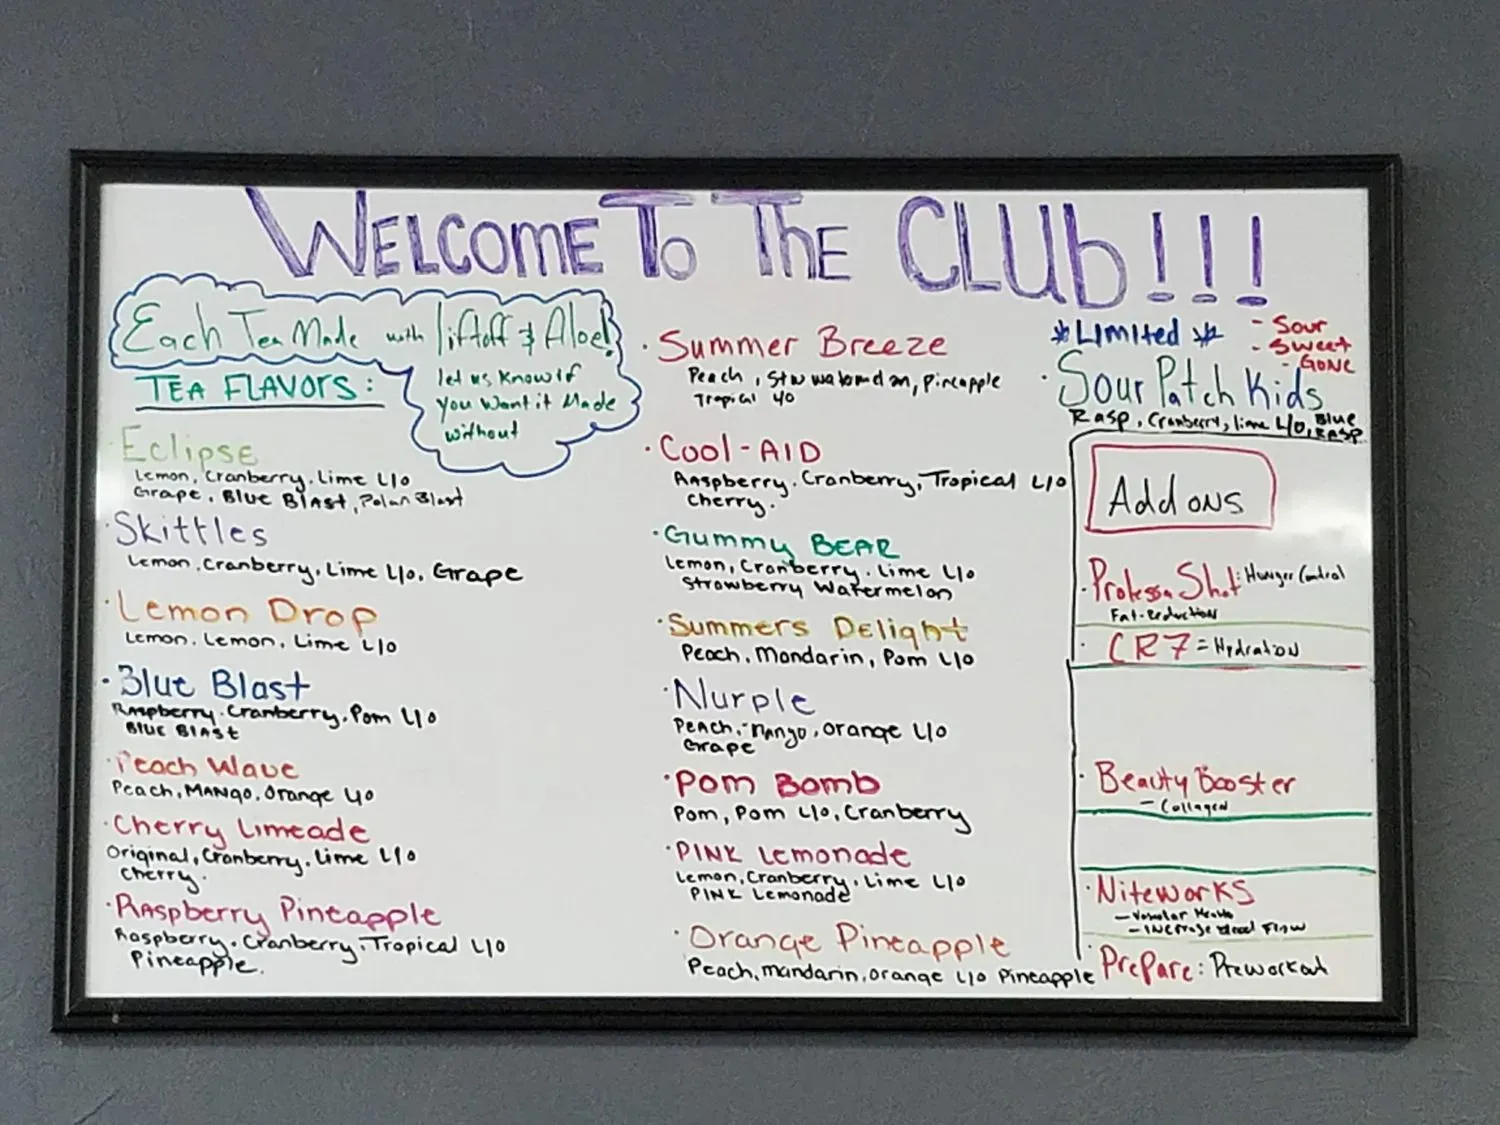 WELCOME TO THE CLUB!!!
Each Tea Made with liftoff & Aloe!
let us know if
you want it Made
without
TEA FLAVORS:
Eclipse
Lemon, Cranberry, Lime L/O
Grape, BLUE BLAST, Polar Blast
· Skittles
Lemon, Cranberry, Lime L/O, Grape
· Lemon Drop
Lemon, Lemon, Lime L/O
· Blue Blast
Raspberry, Cranberry, Pom L/O
BLUE BLAST
· Peach Wave
Peach, MANgo, Orange L/O
· Cherry Limeade
Original, Cranberry, Lime L/O
Cherry.
· Raspberry Pineapple
Raspberry, Cranberry, Tropical L/O
Pineapple.
· Summer Breeze
Peach, Pineapple
Tropical L/O
· Cool-AID
Raspberry, Cranberry, Tropical L/O
Cherry.
· Gummy BEAR
Lemon, Cranberry, Lime L/O
Strawberry Watermelon
· Summers Delight
Peach, Mandarin, Pom L/O
· Nurple
Peach, Mango, Orange L/O
Grape
· Pom Bomb
Pom, Pom L/O, Cranberry
· PINK Lemonade
Lemon, Cranberry, Lime L/O
PINK Lemonade
· Orange Pineapple
Peach, mandarin, orange L/O Pineapple
*LIMITED*
- Sour
- Sweet
- GONE
· Sour Patch Kids
Rasp, Cranberry, lime L/O, Blue
RASP
Add ONS
· Shot: Hunger Control
CR7 = Hydration
· Beauty Booster
- Collagen
· Niteworks
- INCrease Blood Flow
Prepare: Preworkout